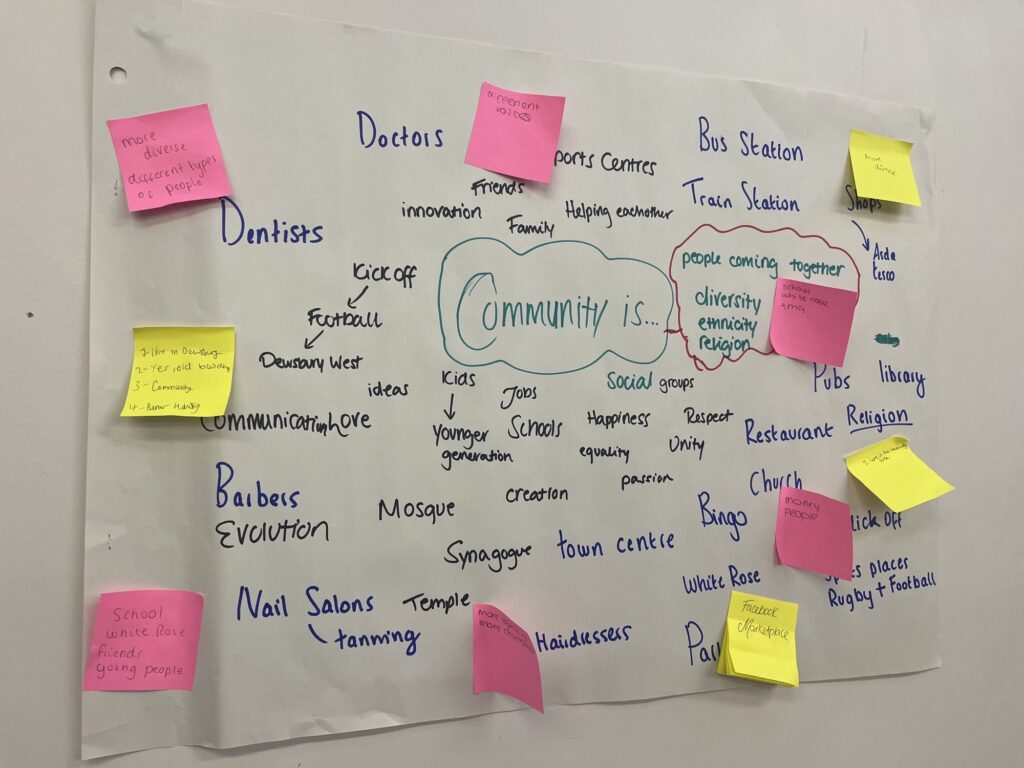 more
diverse
different types
of people
Doctors
different
voices
ports Centres
Bus Station
Train Station
more
diverse
Shops
Asda
tesco
Dentists
Friends
innovation
Family
Helping eachother
Community is...
people coming together
diversity
ethnicity
religion
school
white rose
Kick off
Football
Dewsbury West
1-live in Dewsbury
2-Yes, old building
3-Community
4-
ommunication
Love
ideas
Kids
Younger
generation
Jobs
Schools
Social groups
Happiness
equality
Respect
Unity
passion
Pubs
library
Religion
Restaurant
Church
Bingo
money
people
ick Off
places
Rugby + Football
Barbers
Evolution
Mosque
creation
Synagogue
town centre
White Rose
Nail Salons
tanning
Temple
more
more
Hairdressers
Facebook
Marketplace
School
White Rose
friends
young people